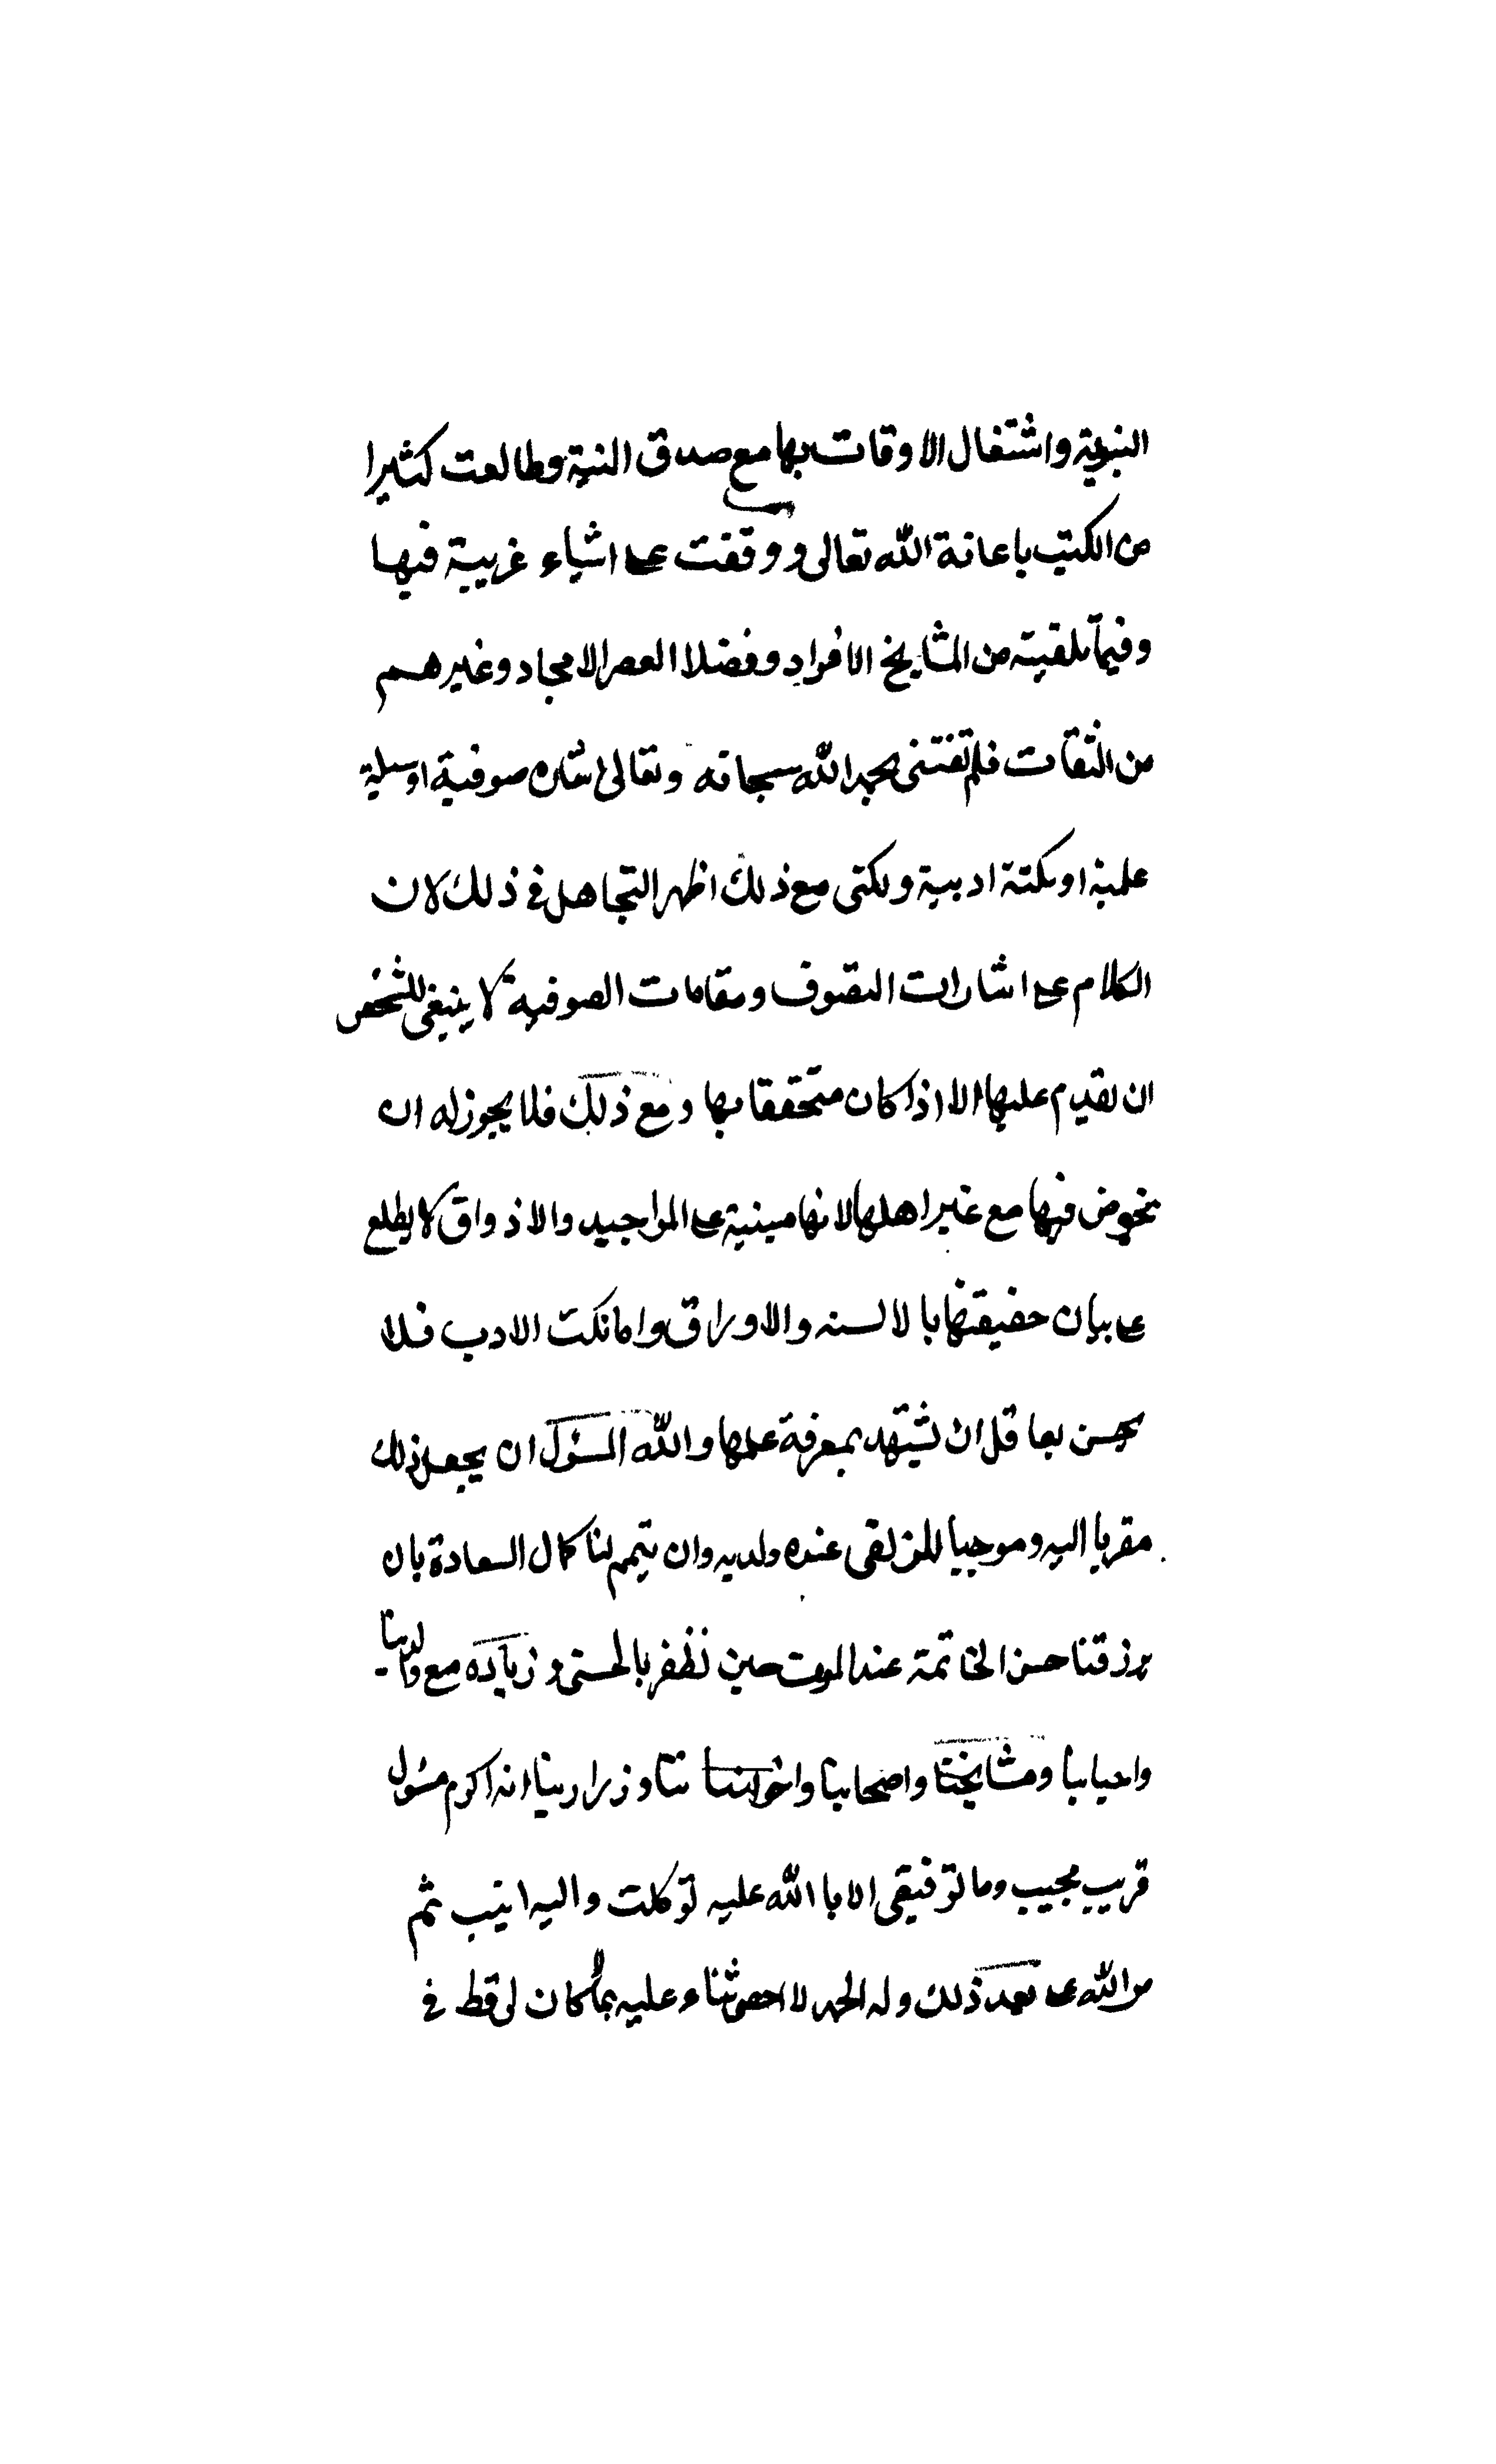 النبوية واشتغال الاوقات بها مع صدق النية وطالعت كثيرا
من الكتب باعانة الله تعالى ووقفت على اشياء غريبة فيها
وفيما تلقيته من المشايخ الافراد وفضلا العصر الامجاد وغيرهم
من الثقات فلم تفتنى بحمد الله سبحانه وتعالى اشاره صوفية او
علمية او نكتة ادبية ولكنى مع ذلك اظهر التجاهل فى ذلك لان
الكلام على اشارات التصوف ومقامات الصوفية لا ينبغى للشخص
ان يقدم عليها الا اذا كان متحققا بها ومع ذلك فلا يجوز له ان
يخوض فيها مع غير اهلها لانها مبنية على المواجيد والاذواق لا يطلع
على بيان حقيقتها بالالسنه والاوراق واما نكت الادب فلا
يحسن بعاقل ان يشتهد بمعرفة علمها والله المسؤل ان يجعل ذلك
مقربا اليه وموجبا للزلفى عنده ولديه وان يتمم لنا كمال السعادة بان
يرزقنا حسن الخاتمة عند الموت حين نظفر بالحسنى وزياده مع والدينا
واحبابنا ومشايخنا واصحابنا واخواننا وذرارينا انه اكرم مسؤل
قريب مجيب وما توفيقى الا بالله عليه توكلت واليه انيب ثم
من الله على بعد ذلك وله الحمد لا احصى ثناء عليه بما كان لى قط فى